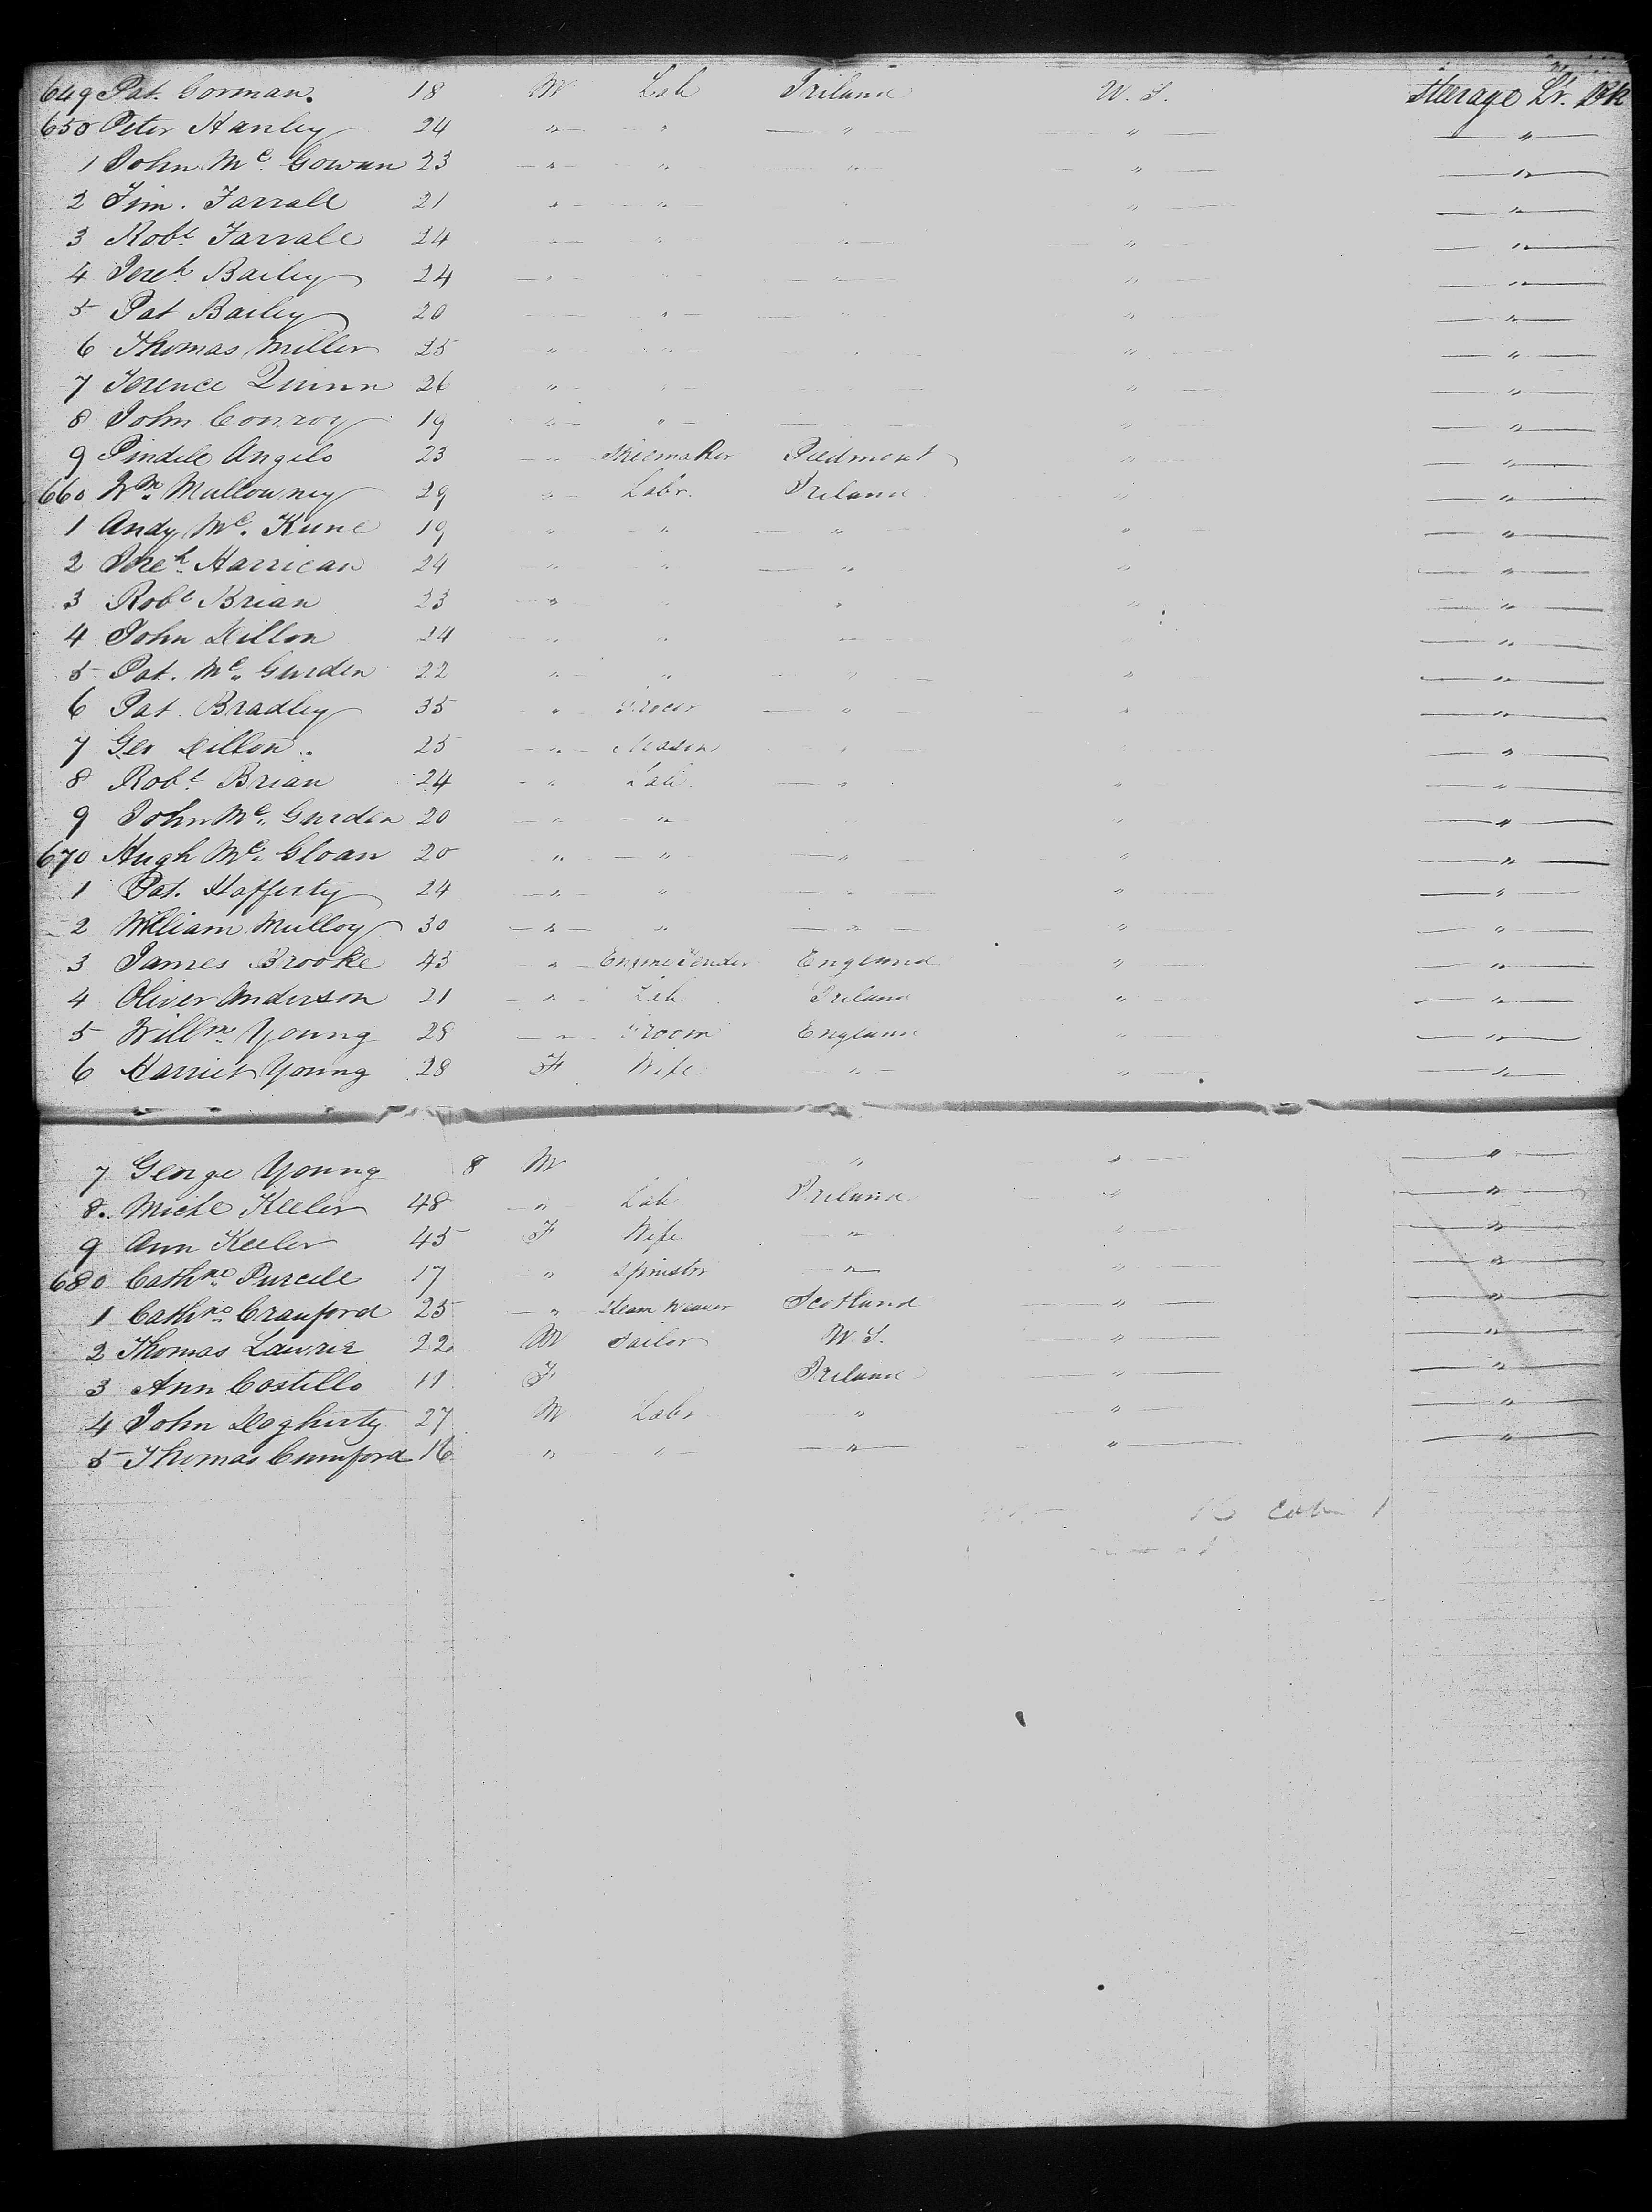 649 Pat. Gorman. 18 M Lab Ireland U. S. Steerage Lr. Dk
650 Peter Hanley 24 " " " " "
1 John Mc. Gowan 23 " " " " "
2 Jim. Farrall 21 " " " " "
3 Robt. Farrall 24 " " " " "
4 Jereh. Bailey 24 " " " " "
5 Pat Bailey 20 " " " " "
6 Thomas Miller 25 " " " " "
7 Terence Quinn 26 " " " " "
8 John Conroy 19 " " " " "
9 Pindele Angelo 23 " Shoemaker Piedmont " "
660 Wm. Mullowney 29 " Labr. Ireland " "
1 Andy Mc. Kune 19 " " " " "
2 Jereh. Harrican 24 " " " " "
3 Robt Brian 23 " " " " "
4 John Dillon 24 " " " " "
5 Pat. Mc. Gurden 22 " " " " "
6 Pat. Bradley 35 " Grocer " " "
7 Geo Dillon. 25 " Mason " " "
8 Robt. Brian 24 " Lab. " " "
9 John Mc. Gurden 20 " " " "
670 Hugh Mc. Cloan 20 " " " " "
1 Pat. Hafferty 24 " " " " "
2 William Mulloy 30 " " " " "
3 James Brooke 43 " Engine Tender England " "
4 Oliver Anderson 21 " Lab Ireland " "
5 Willm. Young 28 " Groom England " "
6 Harriet Young 28 F Wife " " "
7 George Young 8 M " " "
8. Michl Keeler 48 " Lab Ireland " "
9 Ann Keeler 45 F Wife " " "
680 Cathne. Purcell 17 " Spinster " " "
1 Cathne. Crauford 25 " Steam Weaver Scotland " "
2 Thomas Lawrie 22 M Sailor U S. " "
3 Ann Costillo 11 F Ireland " "
4 John Dogherty 27 M Labr " " "
5 Thomas Cumford 16 " " " " "